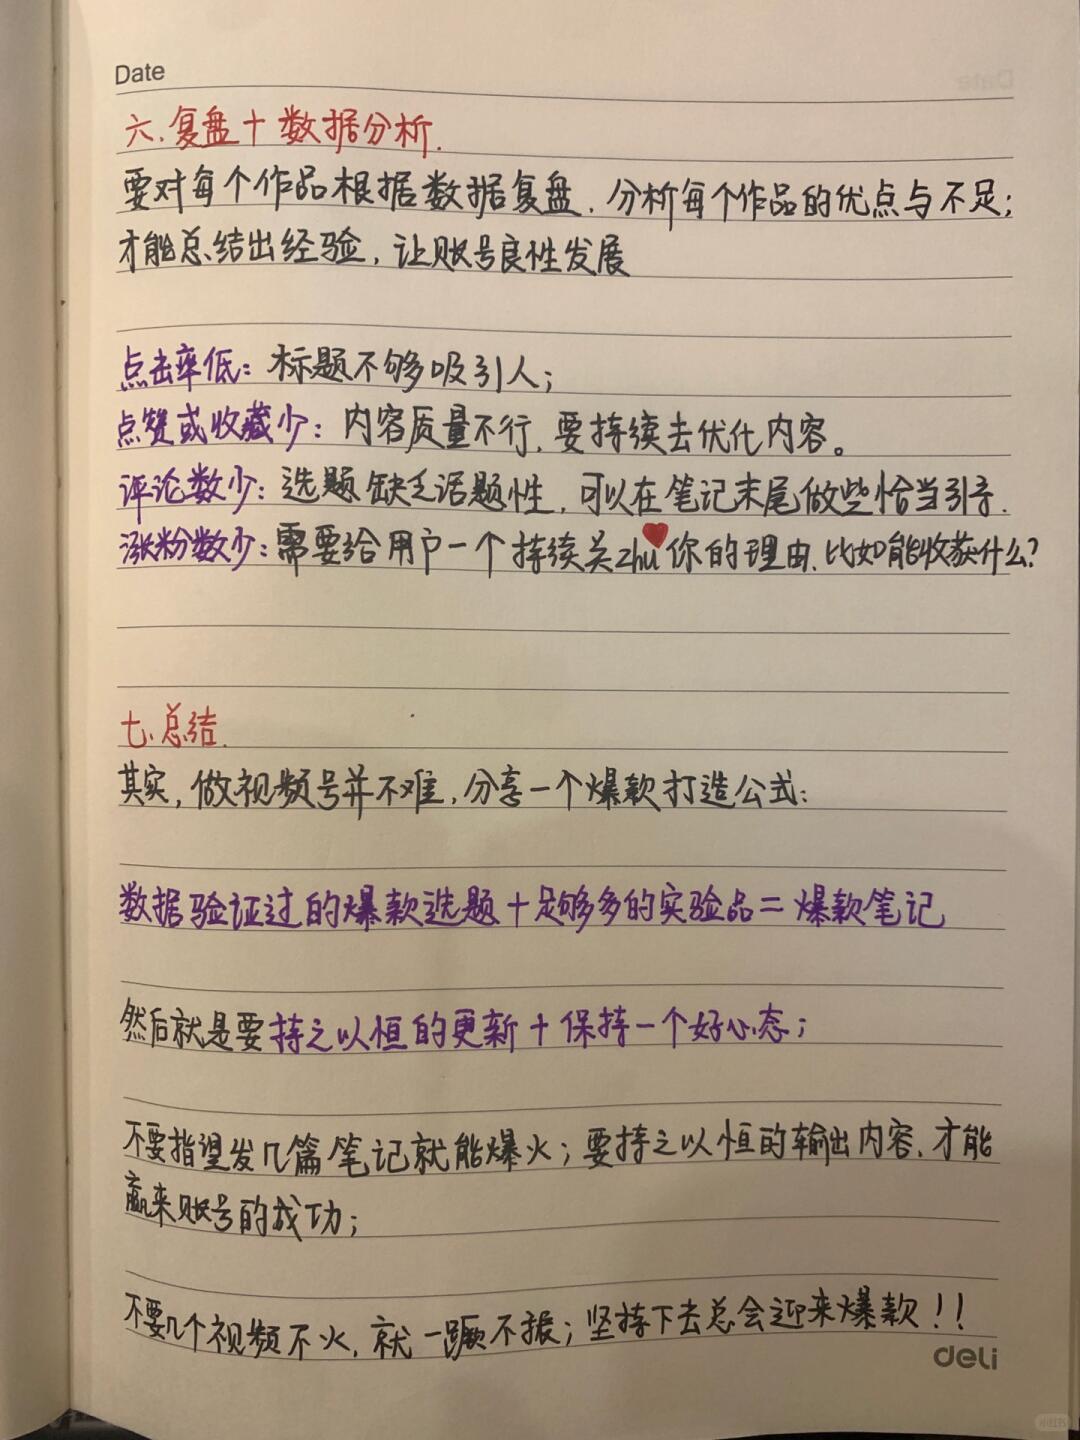 Date
六.复盘+数据分析.
要对每个作品根据数据复盘.分析每个作品的优点与不足;
才能总结出经验,让账号良性发展
点击率低:标题不够吸引人;
点赞或收藏少:内容质量不行.要持续去优化内容。
评论数少:选题缺乏话题性,可以在笔记末尾做些恰当引导.
涨粉数少:需要给用户一个持续关zhu你的理由.比如能收获什么?
七.总结.
其实,做视频号并不难.分享一个爆款打造公式:
数据验证过的爆款选题+足够多的实验品=爆款笔记
然后就是要持之以恒的更新+保持一个好心态;
不要指望发几篇笔记就能爆火;要持之以恒的输出内容.才能
赢来账号的成功;
不要几个视频不火.就一蹶不振;坚持下去总会迎来爆款!!
deli
小红书